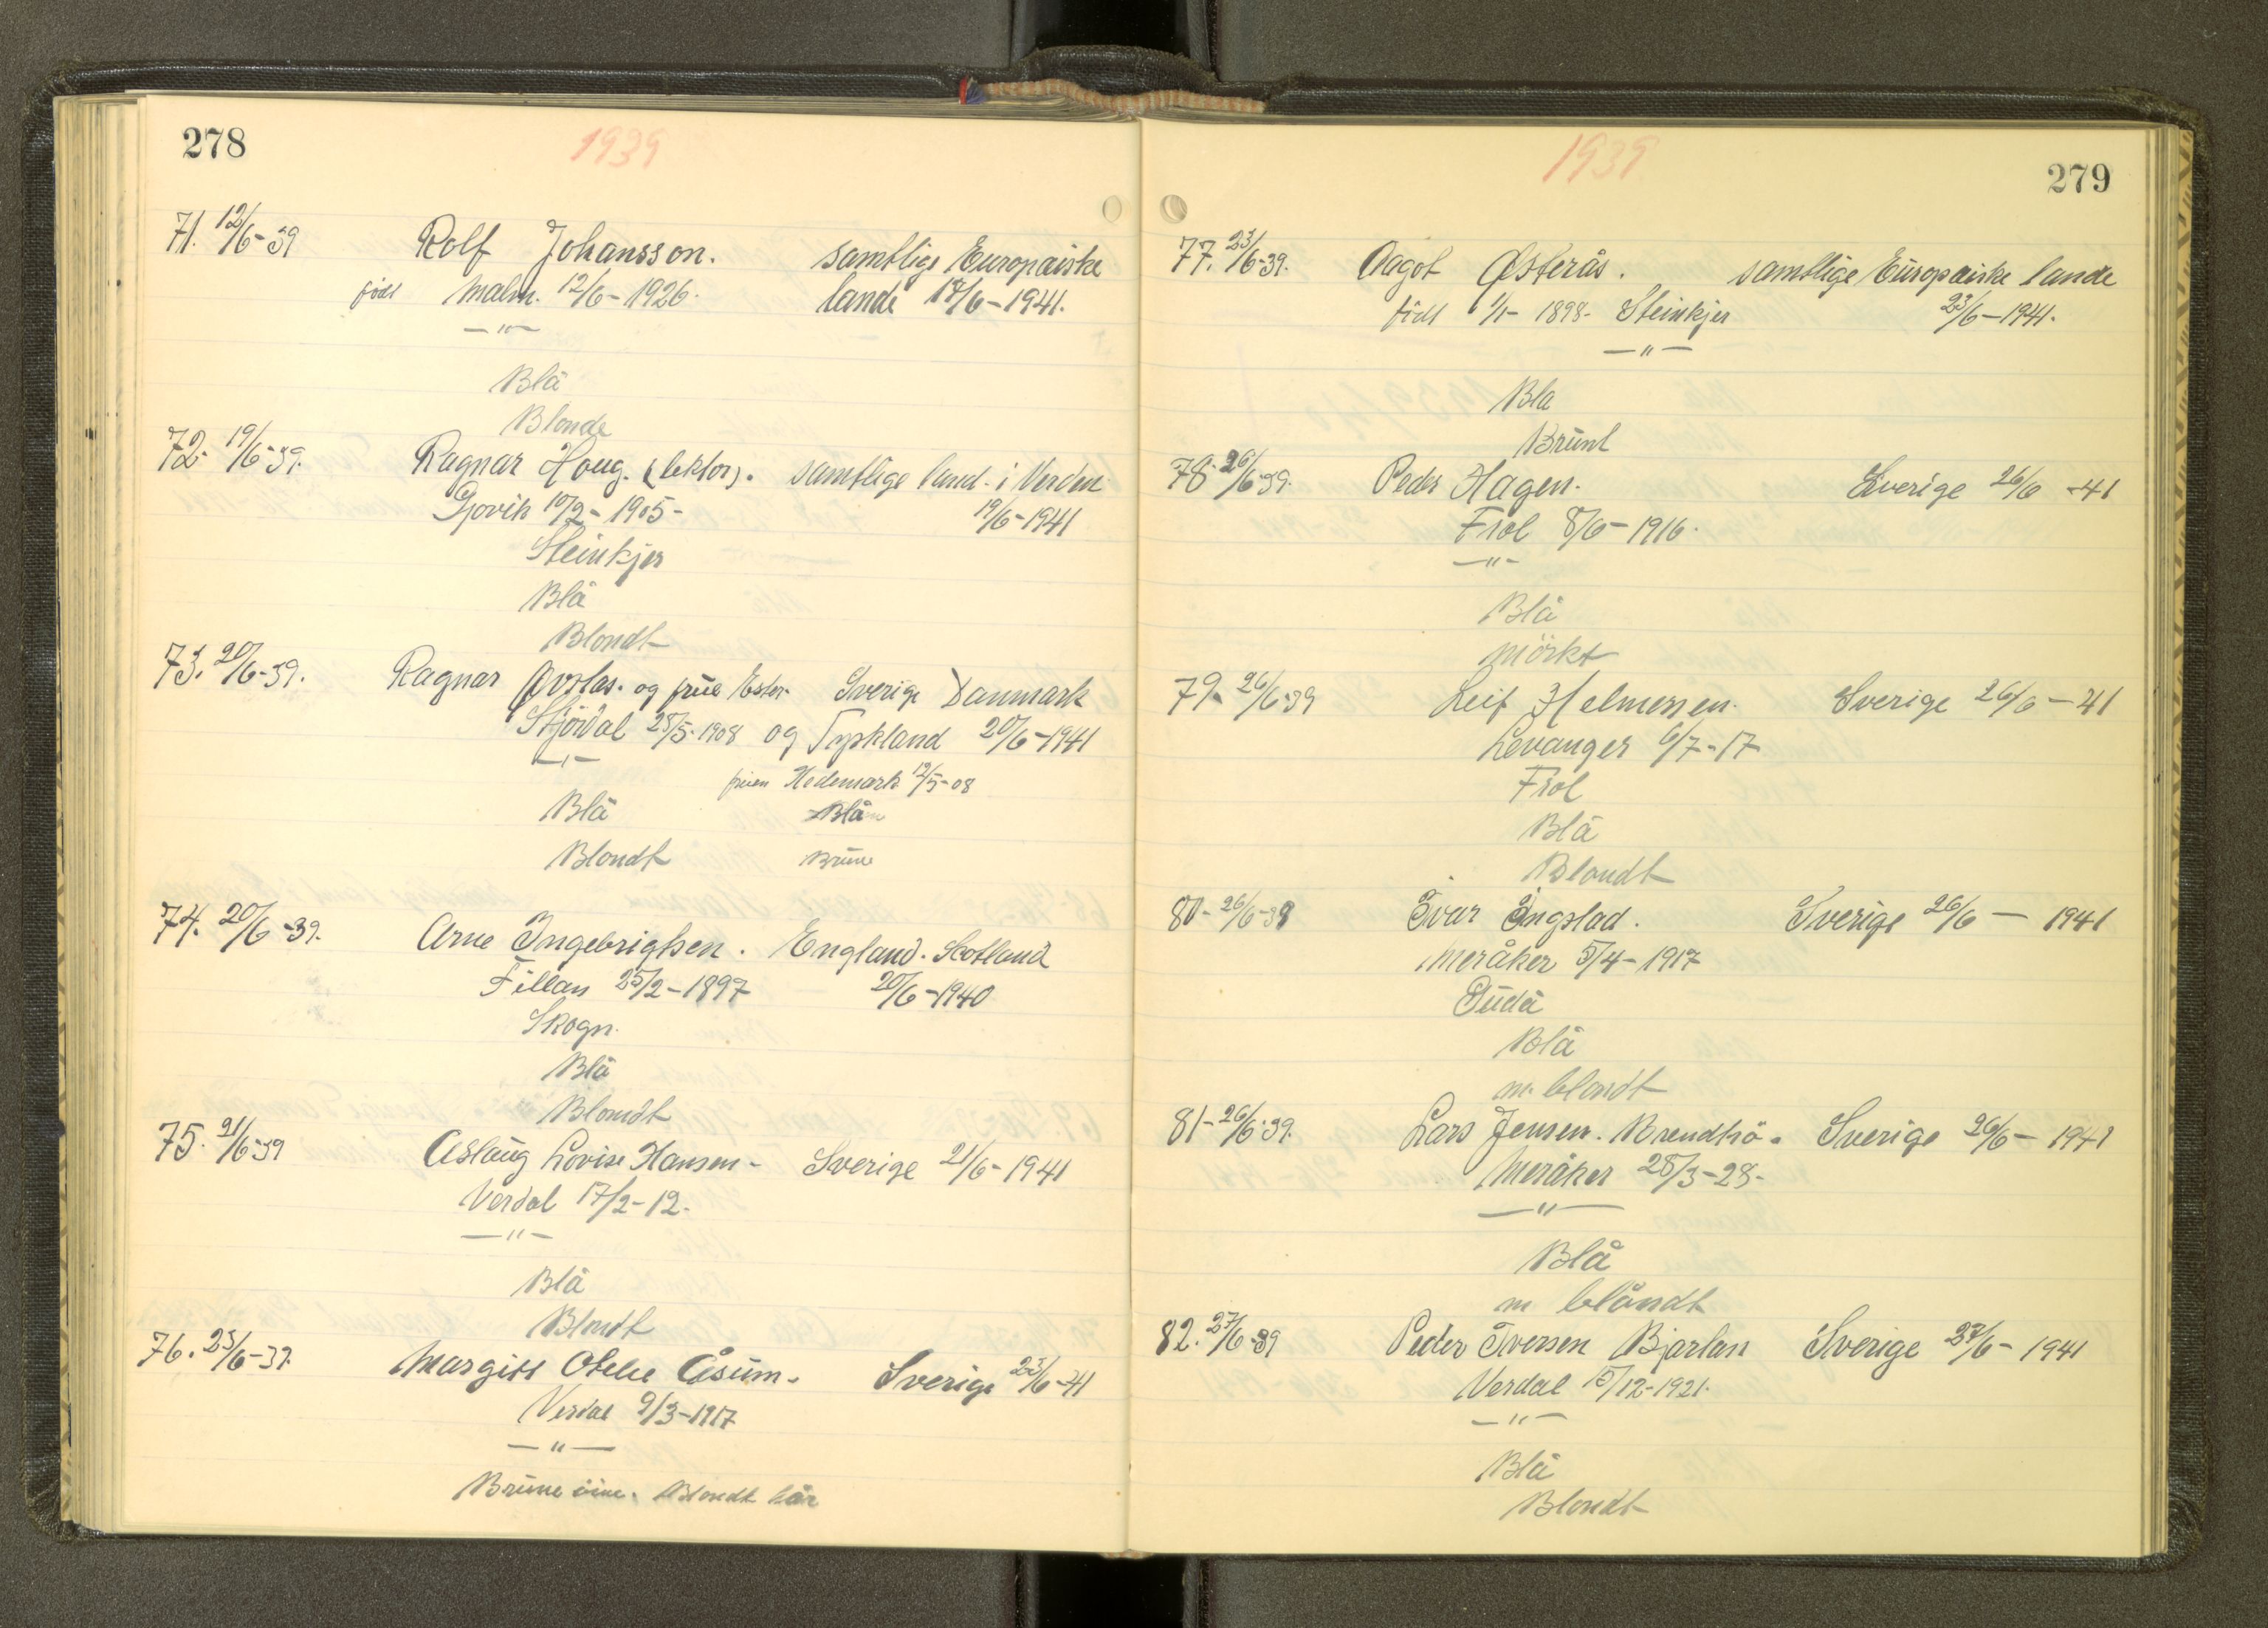 278
1939
71. 12/6-39 Rolf Johansson. samtlige Europæiske
født Malm. 12/6-1926. lande 12/6-1941.
-"-
Blå
Blonde
72. 19/6-39. Ragnar Houg. (lektor). samtlige land. i Verden
Gjøvik 10/2-1905- 19/6-1941
Steinkjer
Blå
Blondt
73. 20/6-39. Ragnar og frue Ester. Sverige Danmark
Stjørdal 28/5-1908 og Tyskland 20/6-1941
-"-
fruen Hedemark 12/5-08
Blå Blå
Blondt Brune
74. 20/6-39. Arne Ingebrigtsen. England. Skotland
Fillan 25/2-1897 20/6-1940
Skogn.
Blå
Blondt
75. 21/6-39 Aslaug Lovise Hansen- Sverige 21/6-1941
Verdal 17/2-12.
-"-
Blå
Blondt
76. 23/6-39. Margitt Otelie Åsum. Sverige 23/6-41
Verdal 9/3-1917
-"-
Brune öine. Blondt hår
1939
279
77. 23/6-39. Aagot Østerås. samtlige Europæiske lande
født 1/1-1898- Steinkjer 23/6-1941.
-"-
Bla
Brunt
78. 26/6-39. Peder Hagen. Sverige 26/6-41
Frol 8/6-1916.
-"-
Blå
mörkt
79. 26/6-39 Leif Helmersen. Sverige 26/6-41
Levanger 6/7-17
Frol
Blå
Blondt
80- 26/6-39 Ivar Ingstad. Sverige 26/6-1941
Meråker 5/4-1917
Gudå
Blå
m. blondt
81- 26/6-39. Lars Jensen. Brendhö. Sverige 26/6-1941
Meråker 28/3-23.
-"-
Blå
m blåndt
82. 27/6-39 Peder Iversen Bjartan Sverige 27/6-1941
Verdal 15/12-1921.
-"-
Blå
Blondt